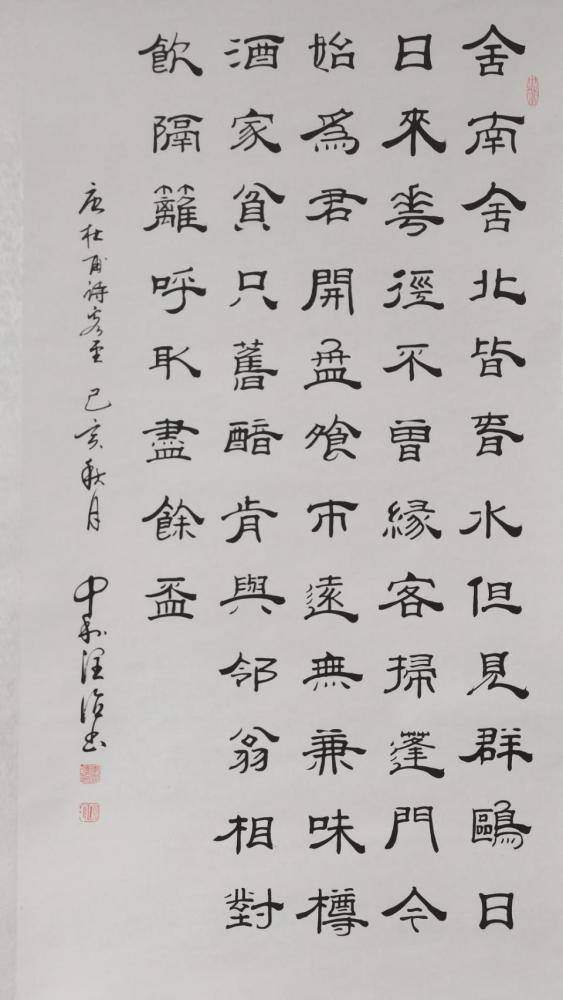 舍南舍北皆春水但見群鷗日
日來花徑不曾緣客掃蓬門今
始爲君開盤飧市遠無兼味樽
酒家貧只舊醅肯與邻翁相對
飲隔籬呼取盡餘盃
唐杜甫詩客至 己亥秋月 中和 書